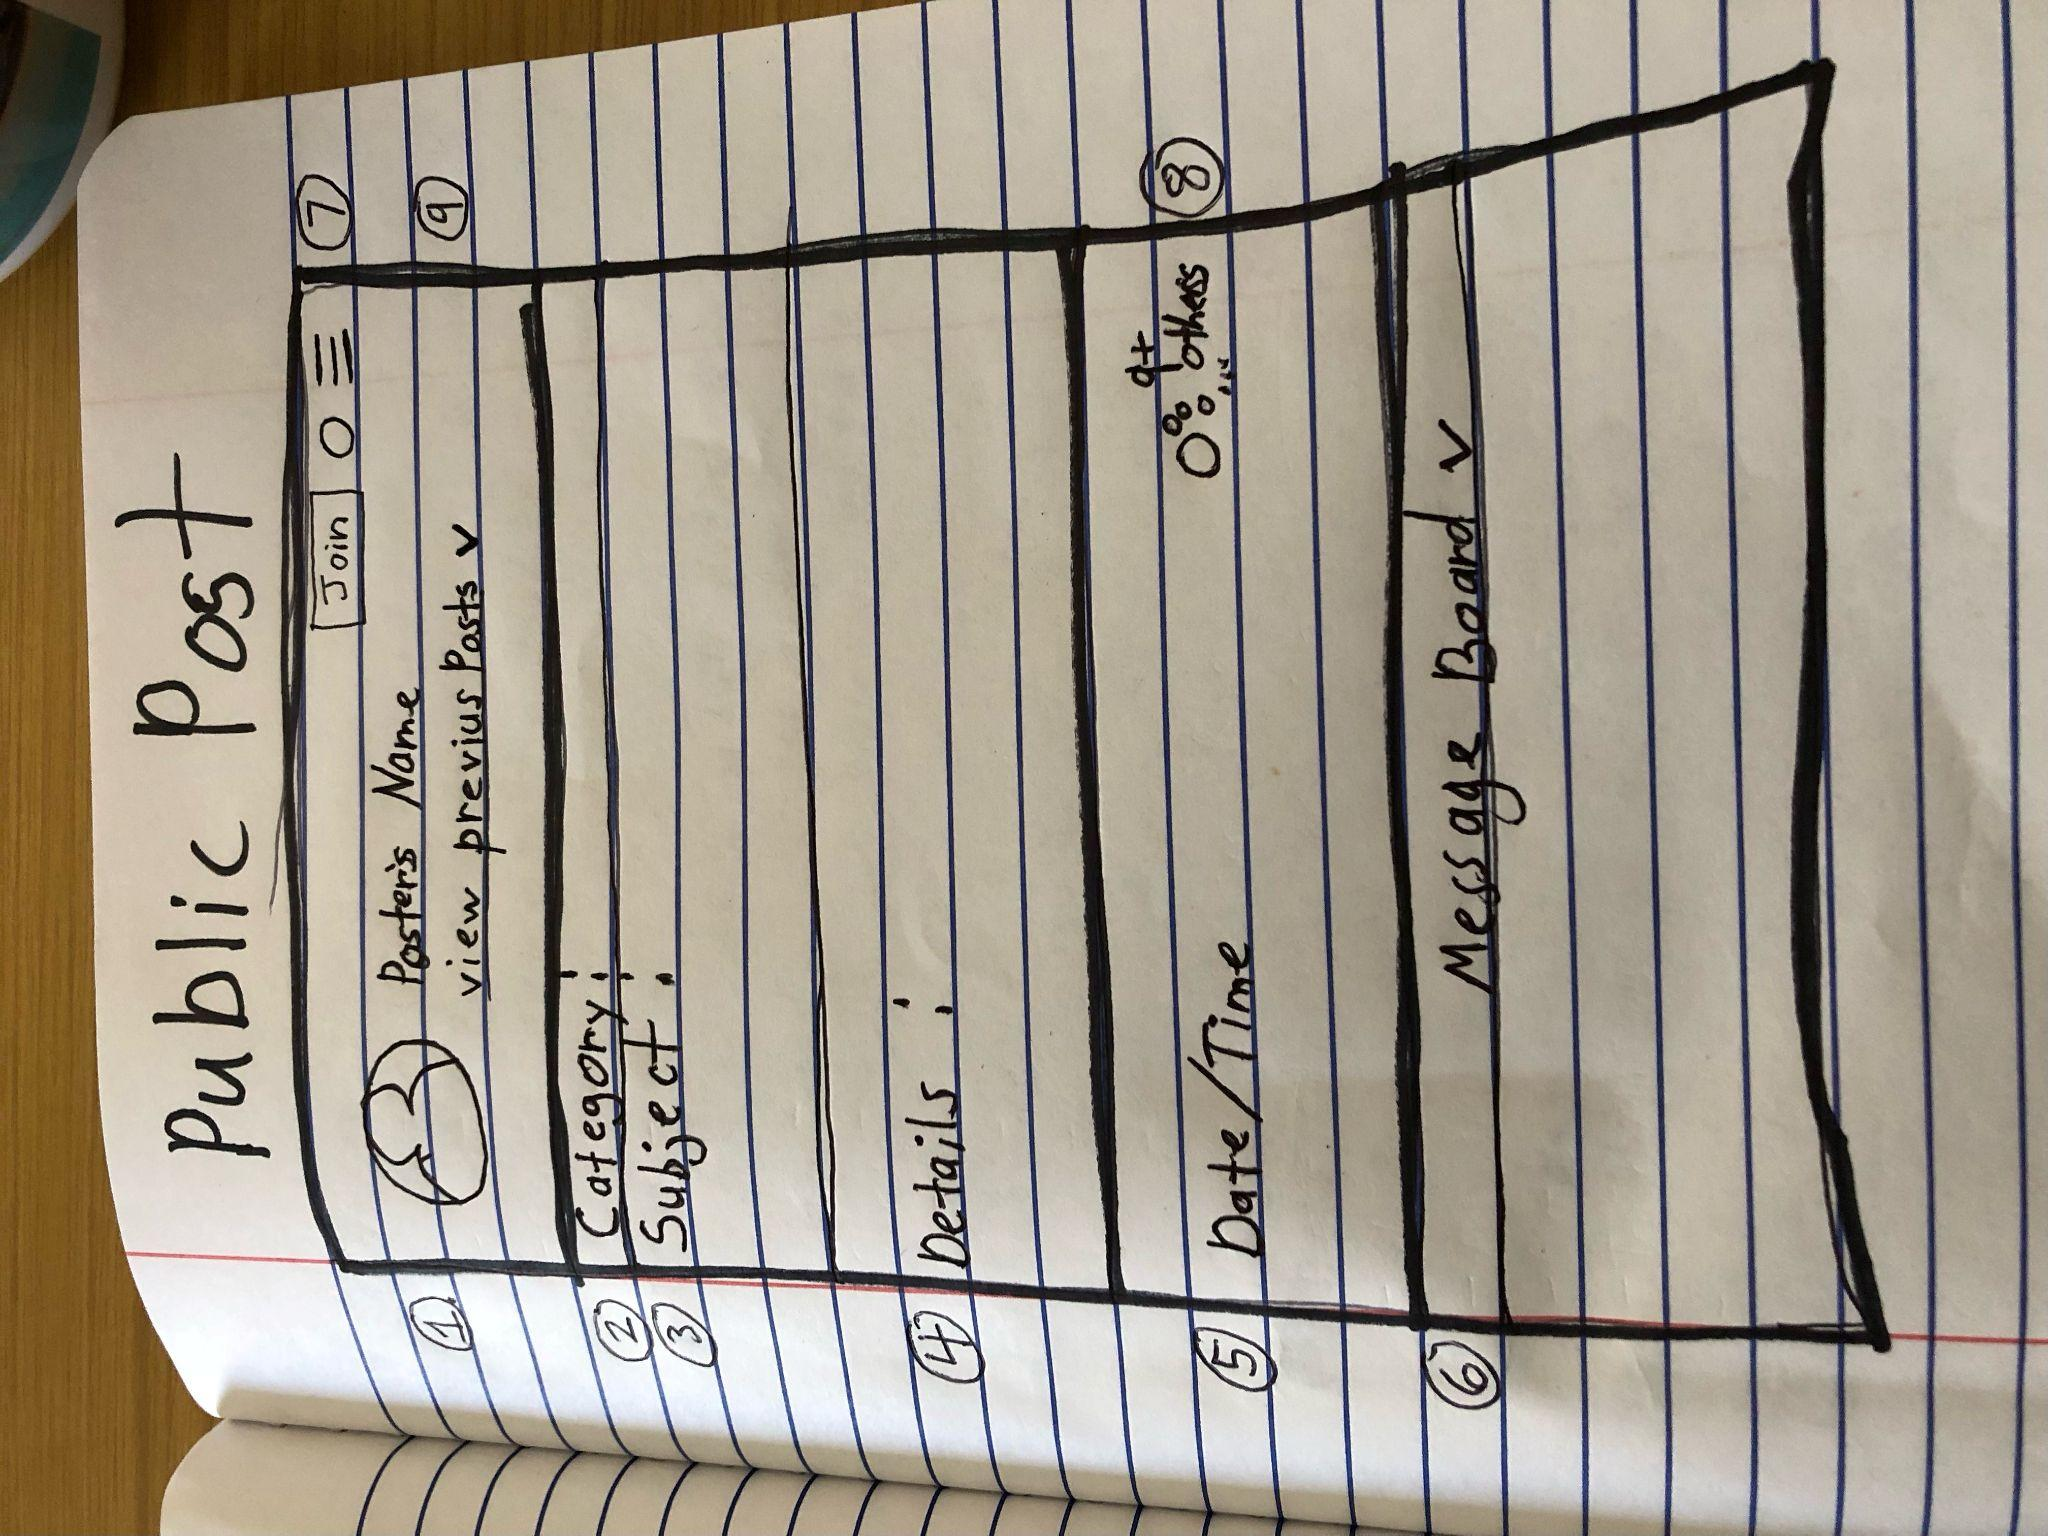 Public Post
Join O ≡ 7
1 Poster's Name 9
view previus Posts v
2 Category:
3 Subject:
4 Details:
9+
5 Date/Time others... 8
6 Message Board v